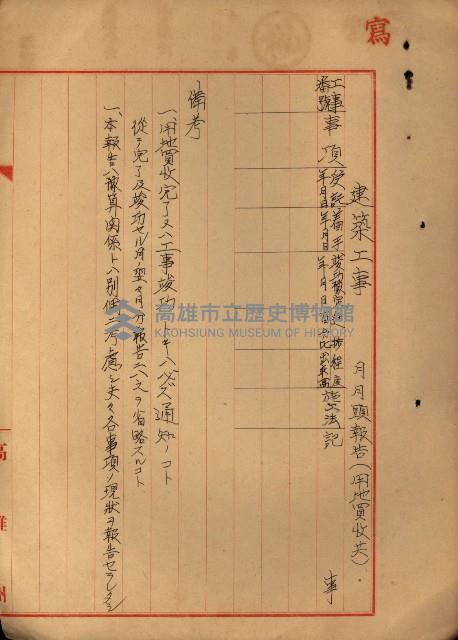 寫
建築工事 月月頭報告（用地買收共）
工事番號 事項 受託年月日 着手年月日 竣功豫定年月日 施工法 記事
備考
一、用地買收完了又ハ工事竣功 キハ必ズ通知ノコト
從テ完了及竣功セル月ノ翌々月分報告ニハ之ヲ省略スルコト
一、本報告ハ豫算関係トハ別個ニ考慮シ夫々各事項ノ現狀ヲ報告セラレタシ
高雄州
高雄市立歷史博物館
KAOHSIUNG MUSEUM OF HISTORY